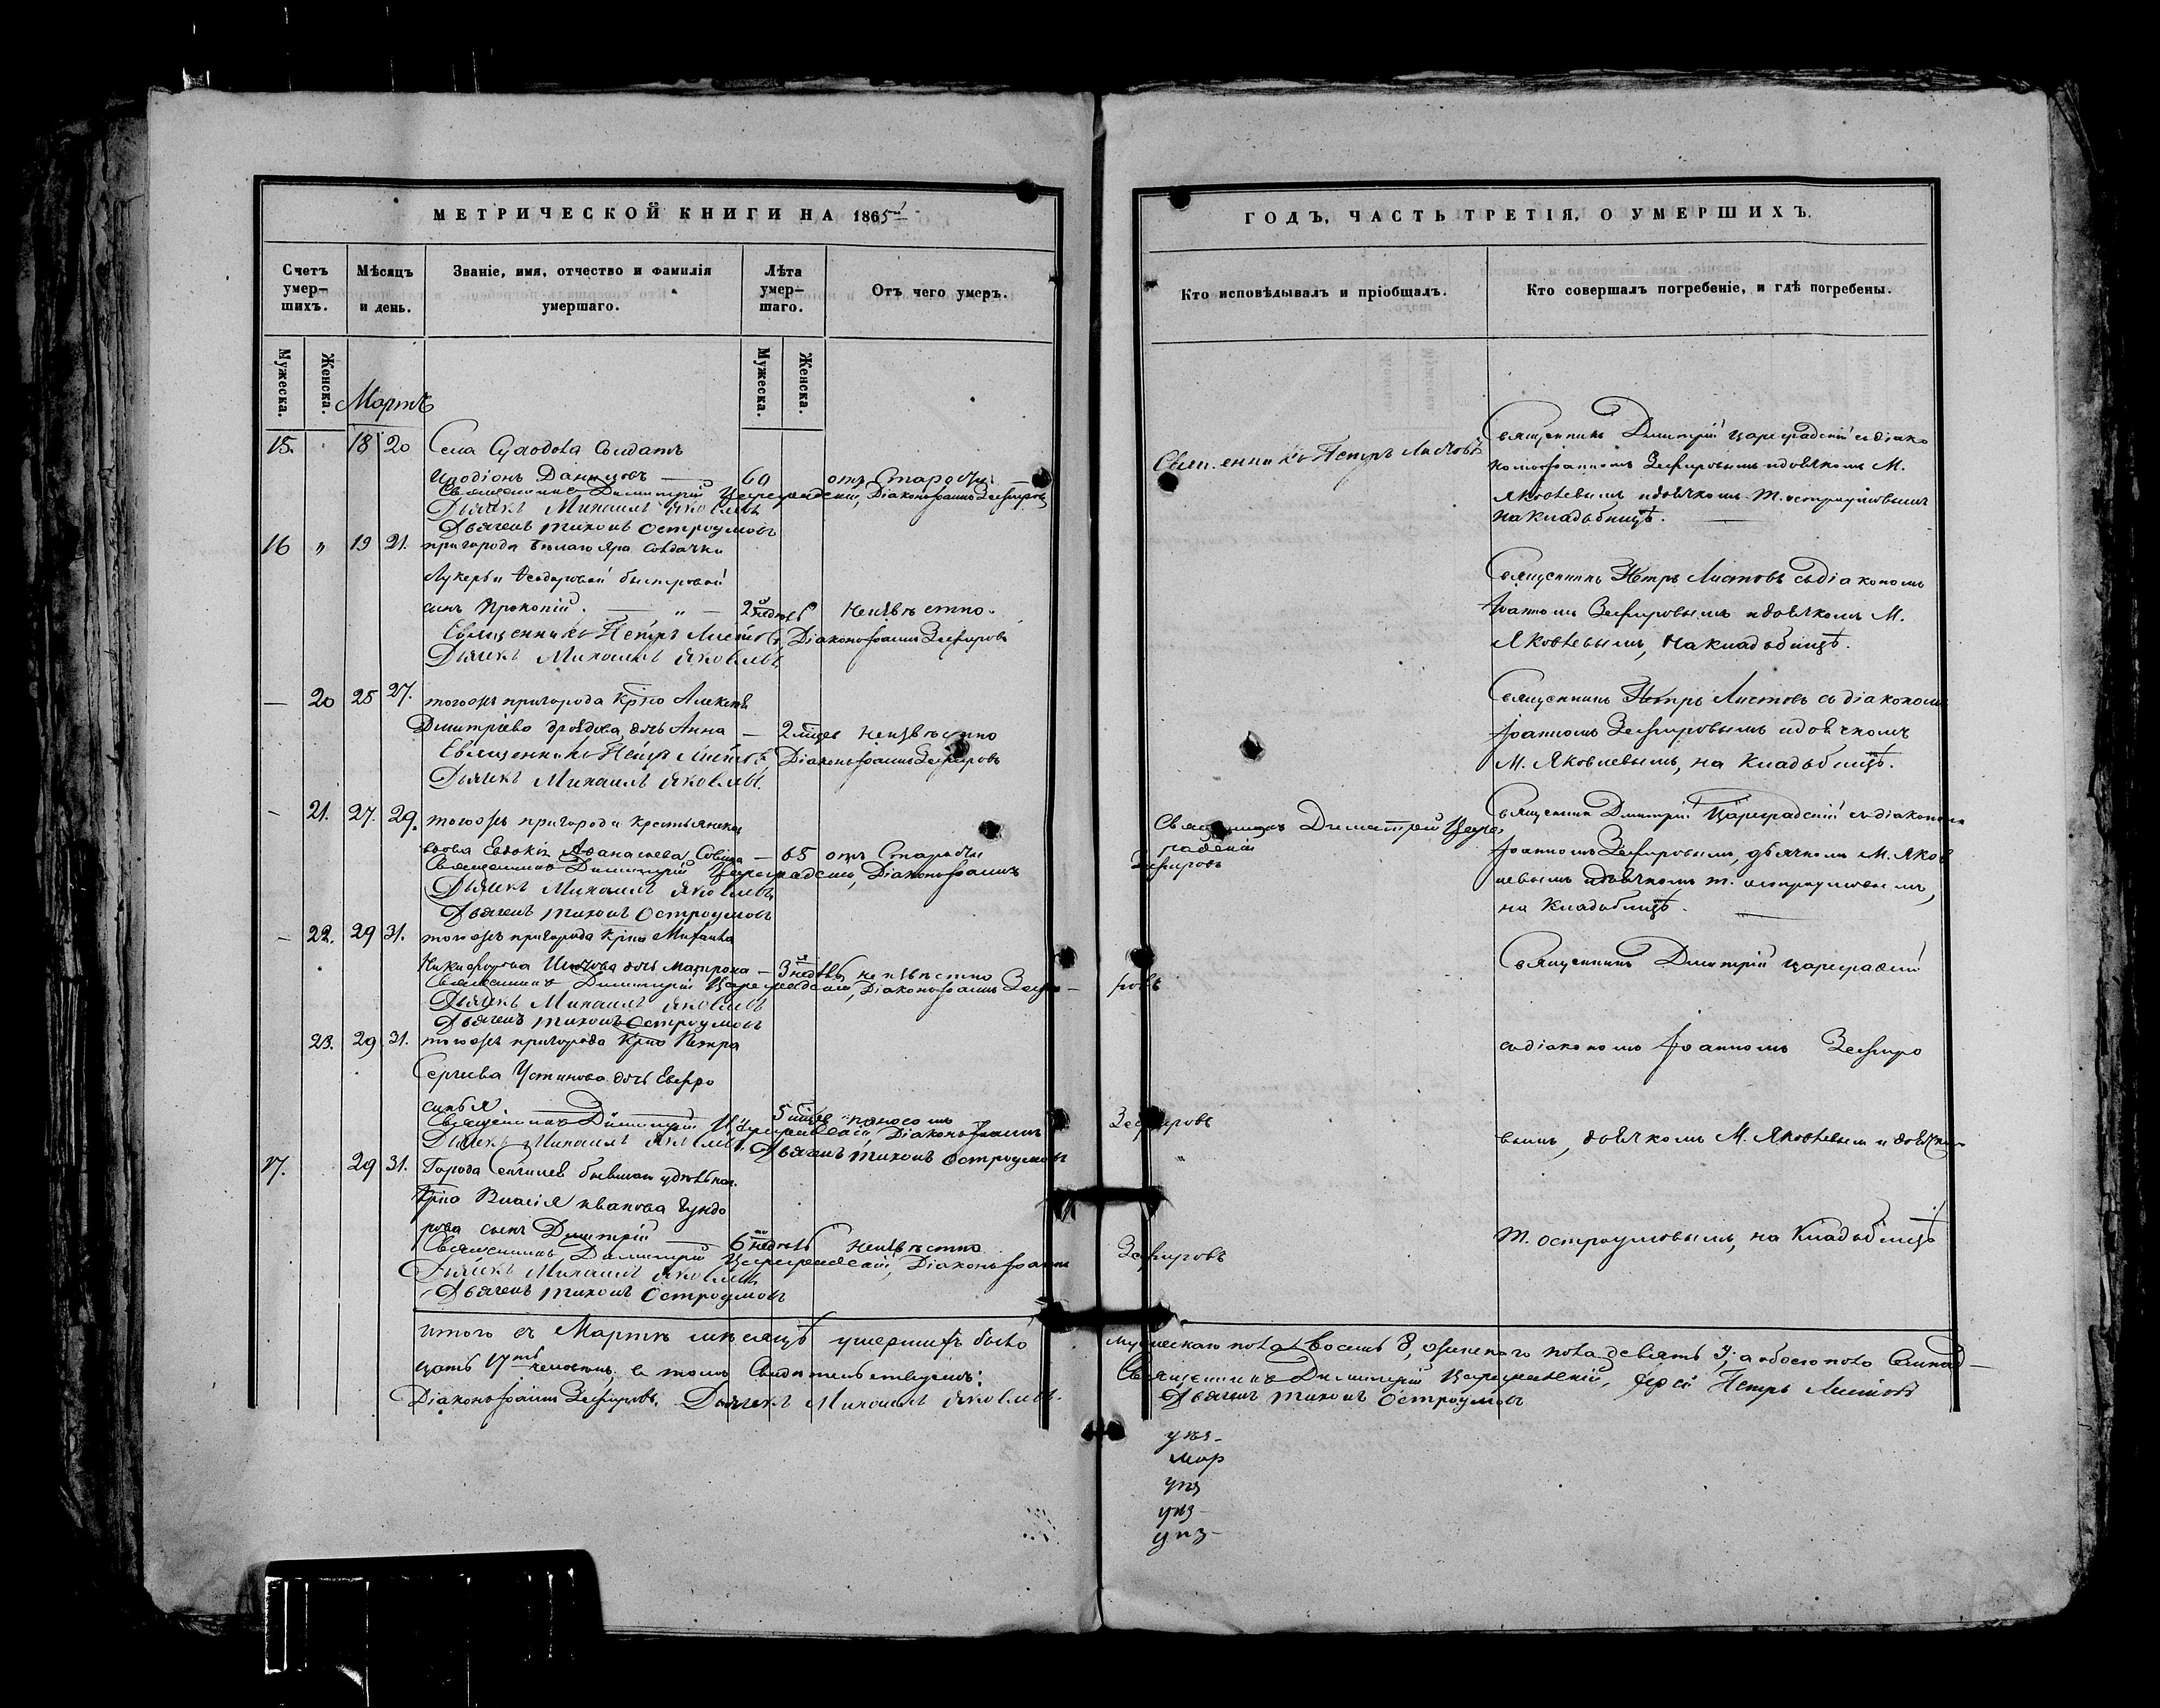 МЕТРИЧЕСКОЙ КНИГИ НА 1865й
Счетъ умер-шихъ.
Мѣсяцъ и день.
Званіе, имя, отчество и фамилія умершаго.
Лѣта умер-шаго.
Отъ чего умеръ.
Мужеска.
Женска.
Мужеска.
Женска.
Мартъ
15. 18 20 Села Суходола Солдатъ
Иродіонъ Даниловъ — 60 отъ Старости. —
Священникъ Димитрій Цареградскій, Діаконъ Іоаннъ Зефировъ
Дьячекъ Михаилъ Яковлевъ
Дьячекъ Тихонъ Остроумовъ
16 „ 19 21. пригорода Бѣлаго Яра Солдатки
Лукерьи Ѳедоровой Быстровой
сынъ Прокопій. — „ — 2 недѣль Неизвѣстно.
Священникъ Петръ Листовъ, Діаконъ Іоаннъ Зефировъ
Дьячекъ Михаилъ Яковлевъ
— 20 25 27. тогожъ пригорода Крно Алексѣя
Дмитріева дочь Анна — 2 мцев Неизвѣстно
Священникъ Петръ Листовъ, Діаконъ Іоаннъ Зефировъ
Дьячекъ Михаилъ Яковлевъ.
- 21. 27. 29. тогожъ пригорода Крестьянская
вдова Евдокія Аѳанасьева — 65 отъ Старости
Священникъ Димитрій Цареградскій, Діаконъ Іоаннъ
Дьячекъ Михаилъ Яковлевъ
Дьячекъ Тихонъ Остроумовъ
- 22. 29 31. тогожъ пригорода Крно Михаила
Никифорова дочь Матрона — 3 недѣль неизвѣстно
Священникъ Димитрій Цареградскій, Діаконъ Іоаннъ Зефи-
Дьячекъ Михаилъ Яковлевъ
Дьячекъ Тихонъ Остроумовъ
23. 29 31. тогожъ пригорода Крно Петра
Сергѣева Устинова дочь Евфро
синья — 5 мцев поносомъ
Священникъ Димитрій Цареградскій, Діаконъ Іоаннъ
Дьячекъ Михаилъ Яковлевъ. Дьячекъ Тихонъ Остроумовъ
17. 29 31. Города бывшаго удѣльнаго
Крно Власія Иванова Гундо
рова сынъ Дмитрій — 6 недѣль Неизвѣстно
Священникъ Димитрій Цареградскій, Діаконъ Іоаннъ
Дьячекъ Михаилъ Яковлевъ
Дьячекъ Тихонъ Остроумовъ
итого въ Мартѣ мѣсяцѣ умершихъ было
цать 17ть человѣкъ, в томъ Свидѣтельствуемъ:
Діаконъ Іоаннъ Зефировъ. Дьячекъ Михаилъ Яковлевъ.
ГОДЪ, ЧАСТЬ ТРЕТІЯ, О УМЕРШИХЪ.
Кто исповѣдывалъ и пріобщалъ.
Кто совершалъ погребеніе, и гдѣ погребены.
Священникъ Петръ Листовъ
Священникъ Дмитрій Цареградскій съ діако
номъ Іоанномъ Зефировымъ и дьячкомъ М.
Яковлевымъ и дьячкомъ Т. Остроумовымъ
на кладбищѣ. —
Священникъ Петръ Листовъ съ діакономъ
Іоанномъ Зефировымъ и дьячкомъ М.
Яковлевымъ, на кладьбищѣ.
Священникъ Петръ Листовъ съ діакономъ
Іоанномъ Зефировымъ и дьячкомъ
М. Яковлевымъ, на кладьбищѣ.
Священникъ Димитрій Царе
градскій
Зефировъ
Священникъ Дмитрій Цареградскій съ діакономъ
Іоанномъ Зефировымъ, дьячкомъ М. Яков
левымъ и дьячкомъ Т. Остроумовымъ,
на кладьбищѣ. —
Священникъ Дмитрій Цареградскій
ровъ
съ діакономъ Іоанномъ Зефиро
Зефировъ
вымъ, дьячкомъ М. Яковлевымъ и дьячком
„
Т. Остроумовымъ, на кладьбищѣ
Зефировъ
мужескаго пола восемь 8, женскаго пола девять 9; а обоего пола семнад—
Священникъ Димитрій Цареградскій, Іерей Петръ Листовъ
Дьячекъ Тихонъ Остроумовъ